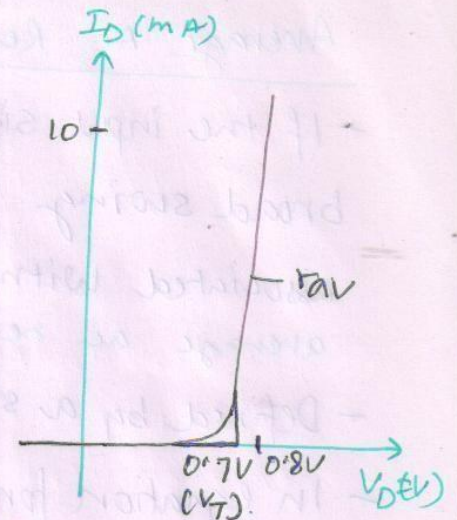 I_D (mA)
10
rav
0.7V 0.8V
(V_T).
V_D (V)